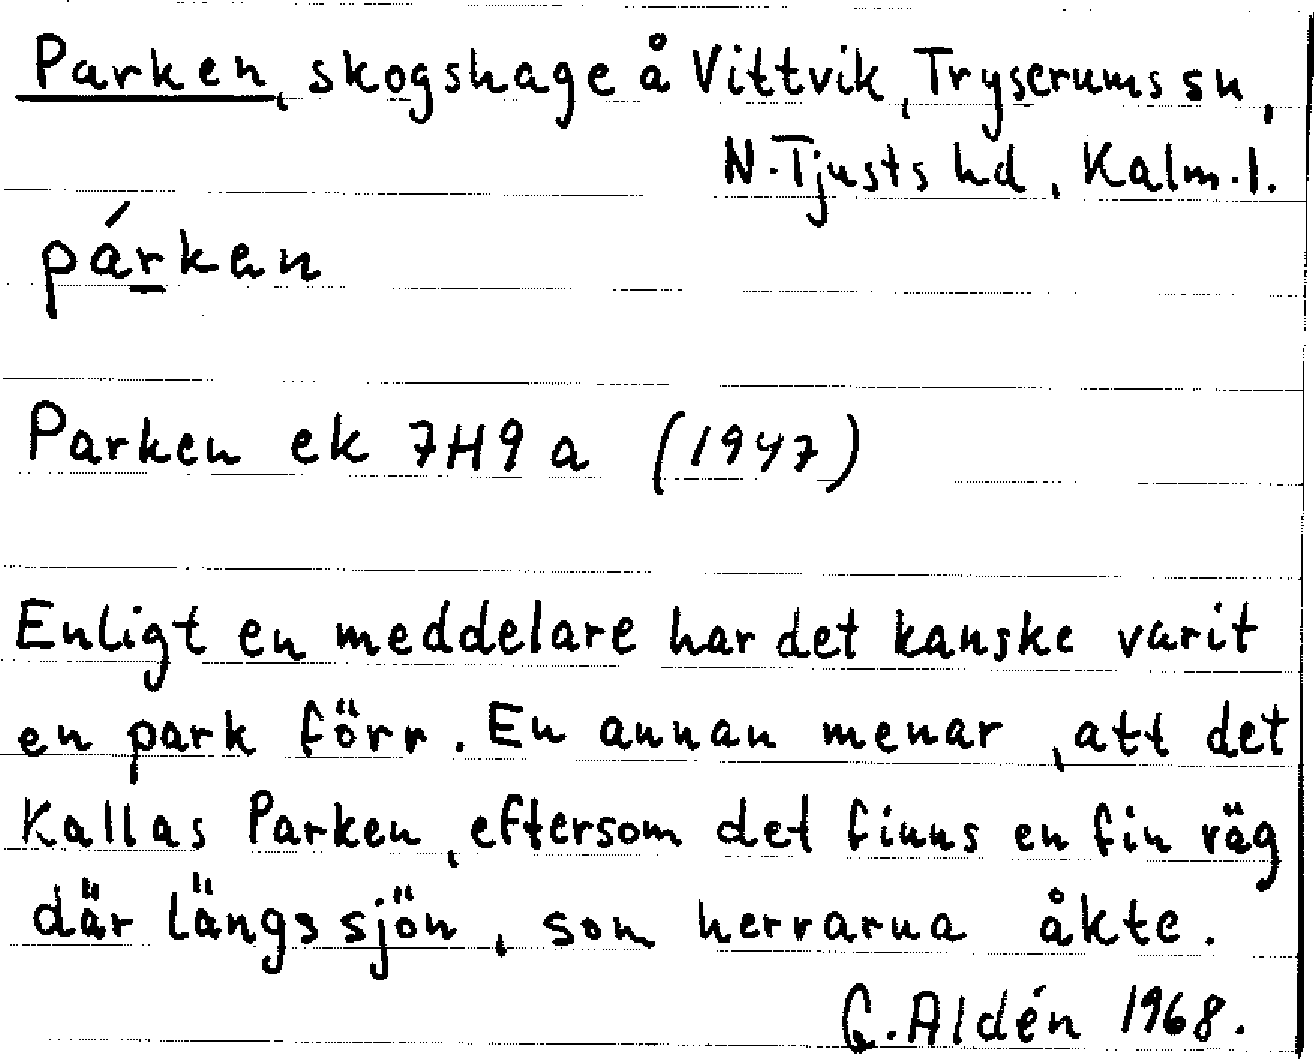 Parken, skogshage å Vittvik, Tryserums sn,
N. Tjusts hd, Kalm. l.
párken
Parken ek 7H9a (1947)
Enligt en meddelare har det kanske varit
en park förr. En annan menar, att det
kallas Parken, eftersom det finns en fin väg
där längs sjön, som herrarna åkte.
G. Aldén 1968.